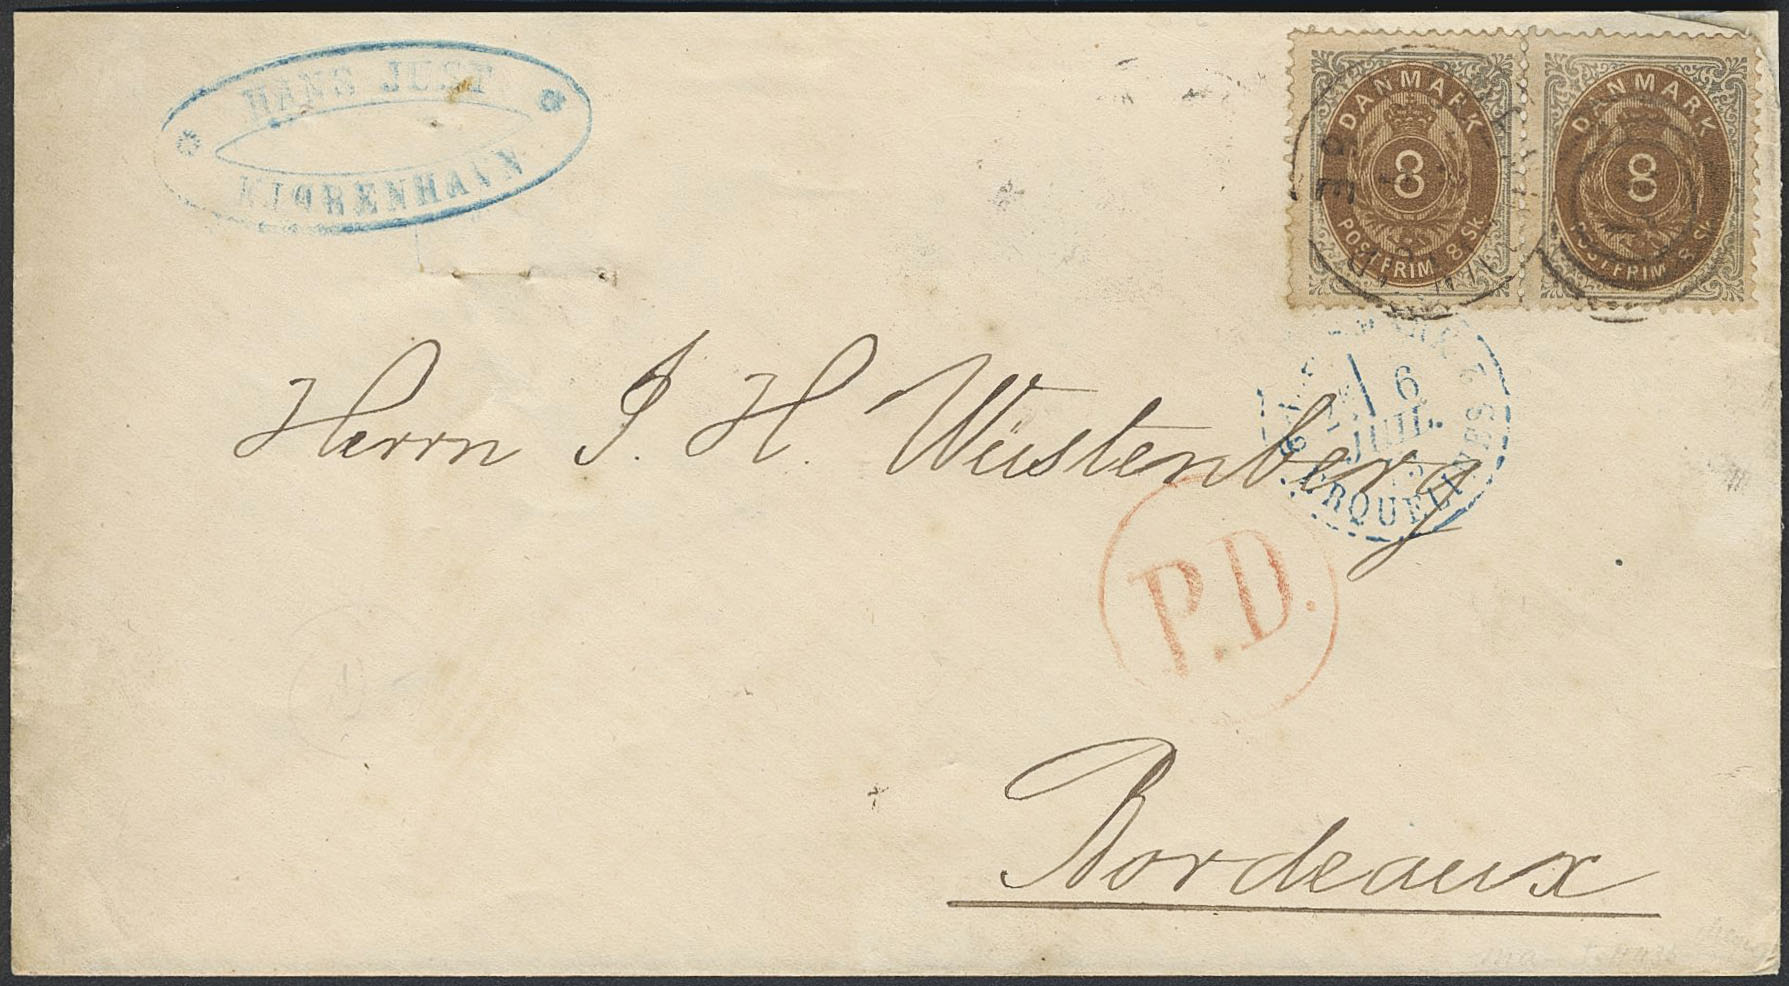 HANS JUST
KJØBENHAVN
DANMARK
8
POSTFRIM 8 SK.
DANMARK
8
POSTFRIM 8 SK
6
JUIL.
ERQUELINES 2
Herrn J. H. Wüstenberg
P.D.
Bordeaux